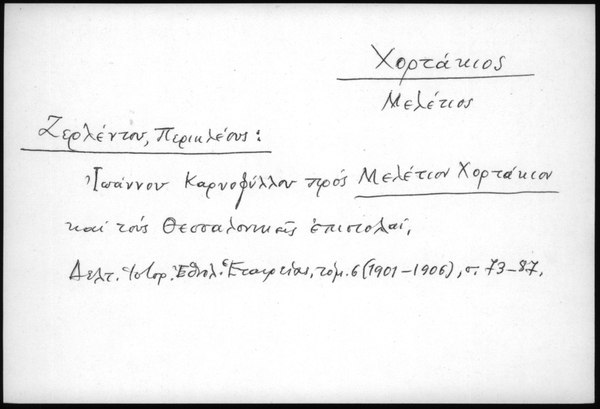 Χορτάκιος
Μελέτιος
Ζερλέντου, Περικλέους:
Ἰωάννου Καρυοφύλλου πρός Μελέτιον Χορτάκιον
καί τούς Θεσσαλονικεῖς ἐπιστολαί,
Δελτ. Ἱστορ. Ἐθνολ. Ἑταιρείας, τόμ. 6 (1901-1906), σ. 73-87.